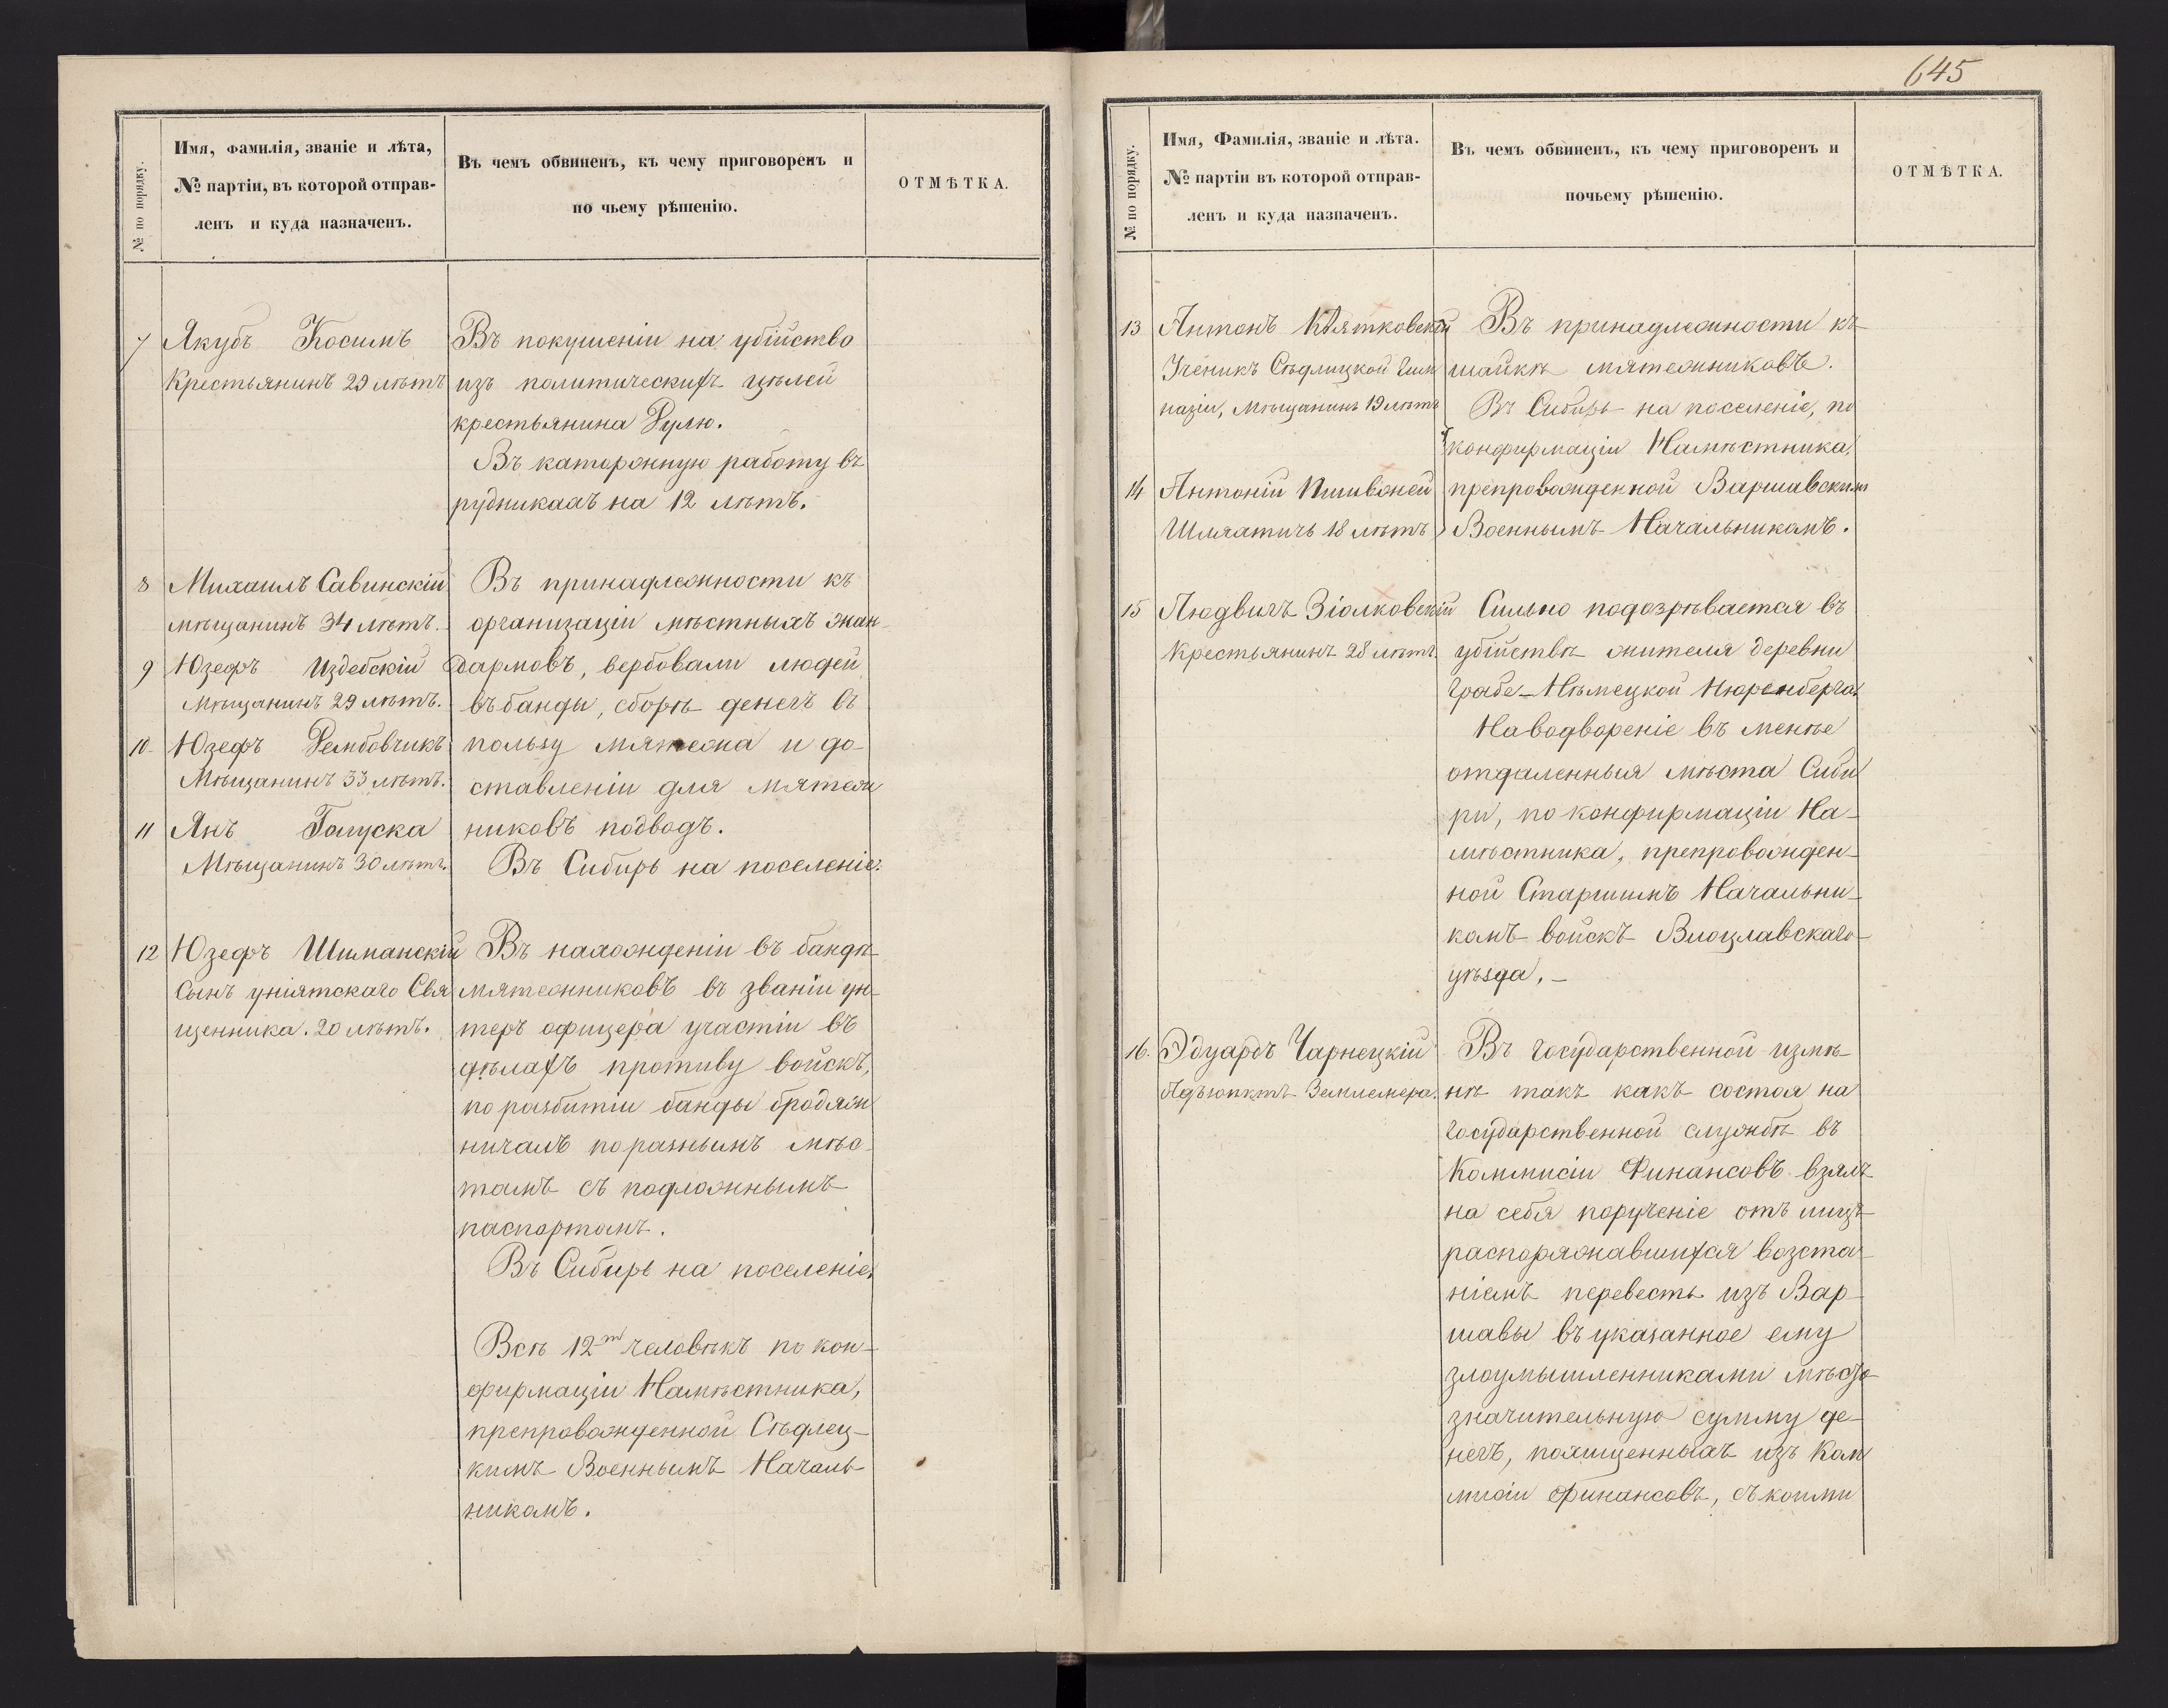 645
№ по порядку.
Имя, фамилія, званіе и лѣта,
№ партіи, въ которой отправ-
ленъ и куда назначенъ.
Въ чемъ обвиненъ, къ чему приговоренъ и
по чьему рѣшенію.
ОТМѢТКА.
7 Якубъ Косимъ
Крестьянинъ 29 лѣтъ
Въ покушеніи на убійство
изъ политическихъ цѣлей
крестьянина Рулю.
Въ каторжную работу въ
рудникахъ на 12 лѣтъ.
8 Михаилъ Савинскій
мѣщанинъ 34 лѣтъ.
9 Юзефъ Издебскій
Мѣщанинъ 29 лѣтъ.
10 Юзефъ Рембовчикъ
Мѣщанинъ 33 лѣтъ.
11 Янъ Галуска
Мѣщанинъ 30 лѣтъ.
Въ принадлежности къ
организаціи мѣстныхъ жан-
дармовъ, вербовали людей
въ банды, сборѣ денегъ въ
пользу мятежа и до-
ставленіи для мятеж
никовъ подводъ.
Въ Сибирь на поселеніе.
12 Юзефъ Шиманскій
Сынъ уніятскаго Свя
щенника. 20 лѣтъ.
Въ нахожденіи въ бандѣ
мятежниковъ въ званіи ун-
теръ офицера участіи въ
дѣлахъ противу войскъ,
по разбитіи банды бродяж
ничалъ по разнымъ мѣс-
тамъ съ подложнымъ
паспортомъ.
Въ Сибирь на поселеніе.
Всѣ 12ᵗ человѣкъ по кон-
фирмаціи Намѣстника,
препровожденной Сѣдлец-
кимъ Военнымъ Началь-
никомъ.
№ по порядку.
Имя, Фамилія, званіе и лѣта.
№ партіи въ которой отправ-
ленъ и куда назначенъ.
Въ чемъ обвиненъ, къ чему приговоренъ и
почьему рѣшенію.
ОТМѢТКА.
13 Антонъ Квятковскій
Ученикъ Сѣдлицкой Гим
назіи, Мѣщанинъ 19 лѣтъ
14 Антоній
Шляхтичъ 18 лѣтъ
Въ принадлежности къ
шайкѣ мятежниковъ.
Въ Сибирь на поселеніе, по
конфирмаціи Намѣстника,
препровожденной Варшавскимъ
Военнымъ Начальникомъ.
15 Людвигъ Зіолковскій
Крестьянинъ 28 лѣтъ.
Сильно подозрѣвается въ
убійствѣ жителя деревни
Грабе-Нѣмецкой Нюренберга.
На водвореніе въ менѣе
отдаленныя мѣста Сиби
ри, по конфирмаціи На-
мѣстника, препровожден-
ной Старшимъ Начальни-
комъ войскъ Влоцлавскаго
уѣзда. –
16. Эдуардъ Чарнецкій
Адъюнктъ Землемера.
Въ Государственной измѣ-
нѣ такъ какъ состоя на
Государственной службѣ въ
Коммисіи Финансовъ взялъ
на себя порученіе отъ лицъ
распоряжавшихся возста-
ніемъ перевесть изъ Вар-
шавы въ указанное ему
злоумышленниками мѣсто
значительную сумму де-
негъ, похищенныхъ изъ Ком
мисіи Финансовъ, съ коими